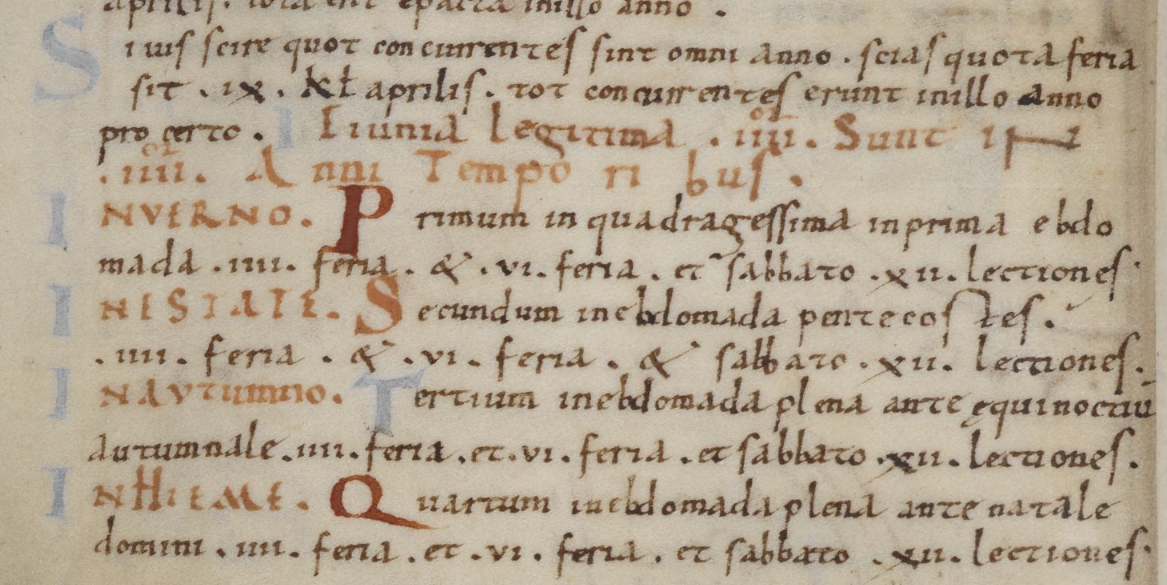 aprilis. tota erit epacta inillo anno .
Si uis scire quot concurrentes sint omni anno . scias quota feria
sit . ix . kł aprilis . tot concurrentes erunt inillo anno
pro certo . I Eiunia legitima . iiii.or Sunt in
. iiii.or Anni Tempo ri bus .
INVERNO . Primum in quadragessima inprima ebdo
mada . iiii . feria . & . vi . feria . et sabbato . xii . lectiones .
INESTATE . Secundum inebdomada pentecostes .
. iiii . feria . & . vi . feria . & sabbato . xii . lectiones .
INAVTumno . Tertium inebdomada plena ante ęquinoctiū
autumnale . iiii . feria . et . vi . feria . et sabbato . xii . lectiones .
INHIEME . Quartum inebdomada plena ante natale
domini . iiii . feria . et . vi . feria . et sabbato . xii . lectiones .